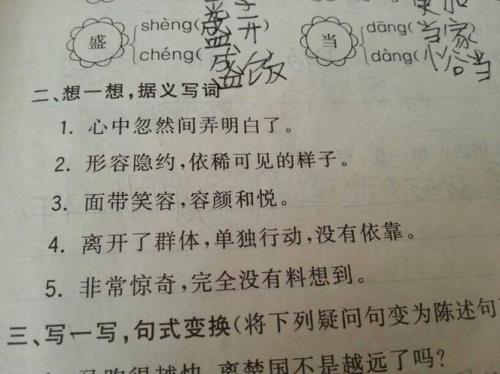 shèng(盛开
盛
chéng(盛饭
dāng(当家
当
dàng(恰当
二、想一想,据义写词
1. 心中忽然间弄明白了。
2. 形容隐约,依稀可见的样子。
3. 面带笑容,容颜和悦。
4. 离开了群体,单独行动,没有依靠。
5. 非常惊奇,完全没有料想到。
三、写一写,句式变换(将下列疑问句变为陈述句
马跑得越快,离楚国不是越远了吗?